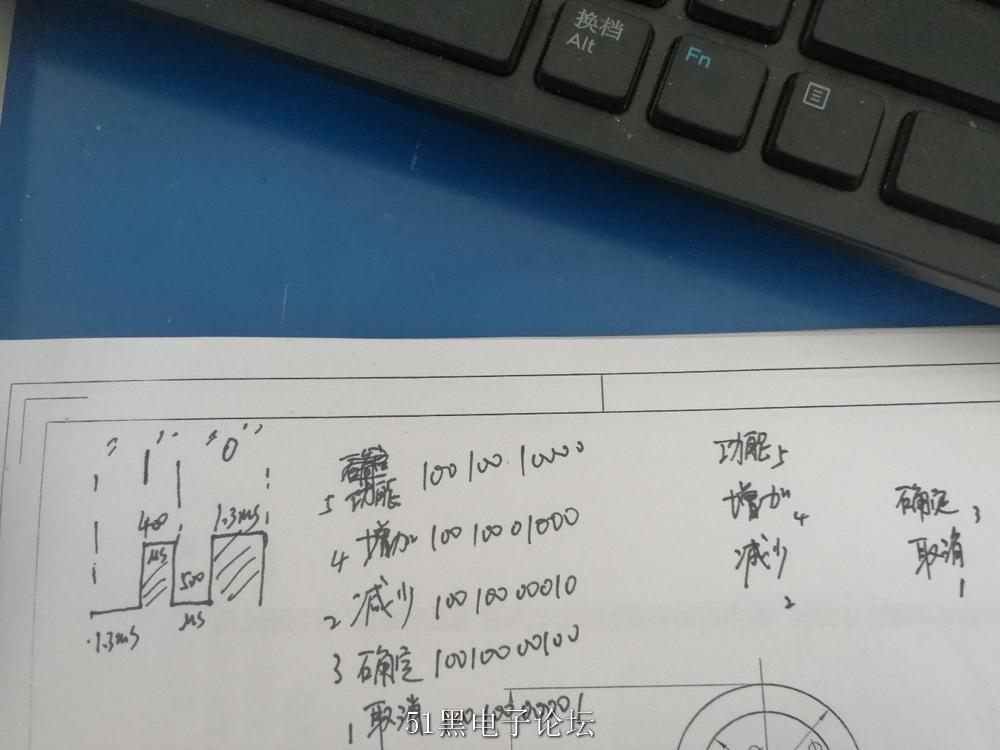 换档
Alt
Fn
"1" "0"
400
μs
1.3ms
500
μs
1.3ms
5 功能 100100 10000
4 增加 1001001000
2 减少 1001000010
3 确定 1001000100
1 取消
功能 5
增加 4
减少 2
确定 3
取消 1
51黑电子论坛